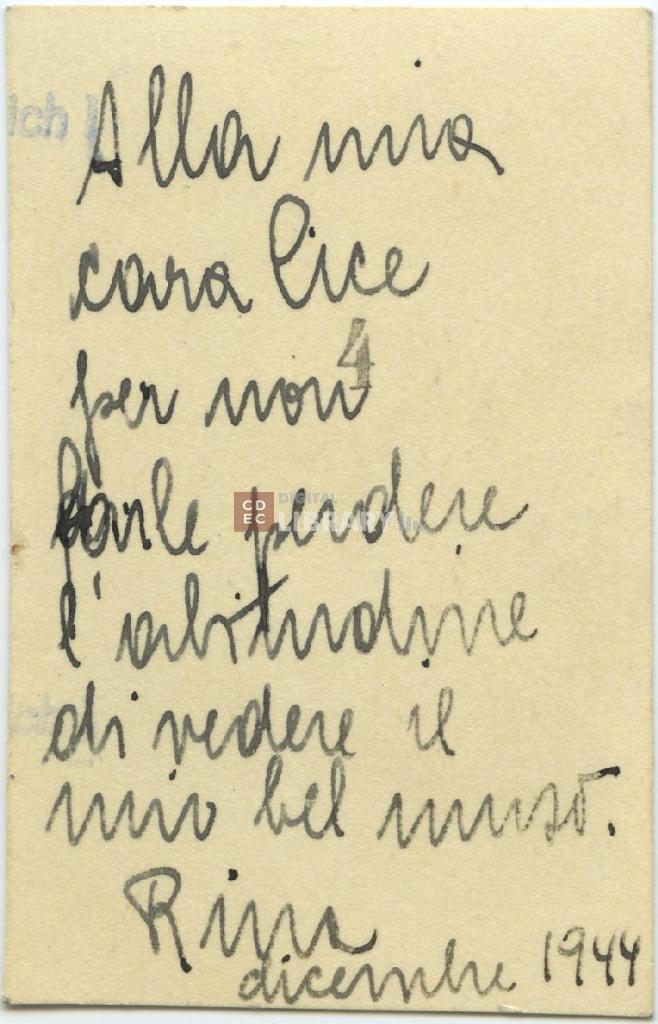 ich
Alla mia
cara Cice
4
per non
farle perdere
CD
EC
DIGITAL
LIBRARY
l'abitudine
di vedere il
mio bel muso.
Rina
dicembre 1944